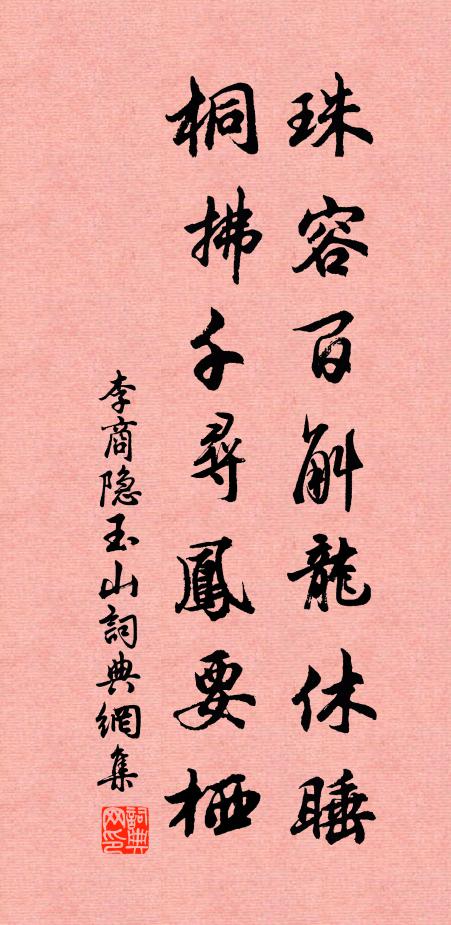 珠容百斛龍休睡
桐拂千尋鳳要栖
李商隐玉山詞典網集
詞典网印